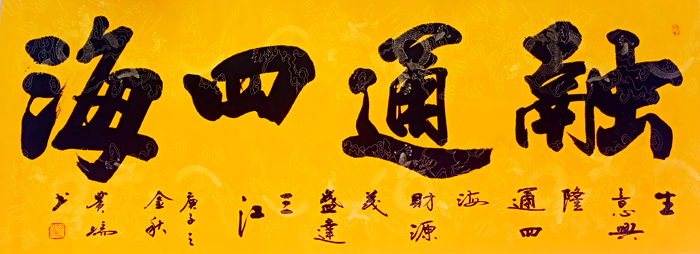 融通四海
生
意興
隆
通四
海
財源
茂
盛達
三
江
庚子之
金秋
书